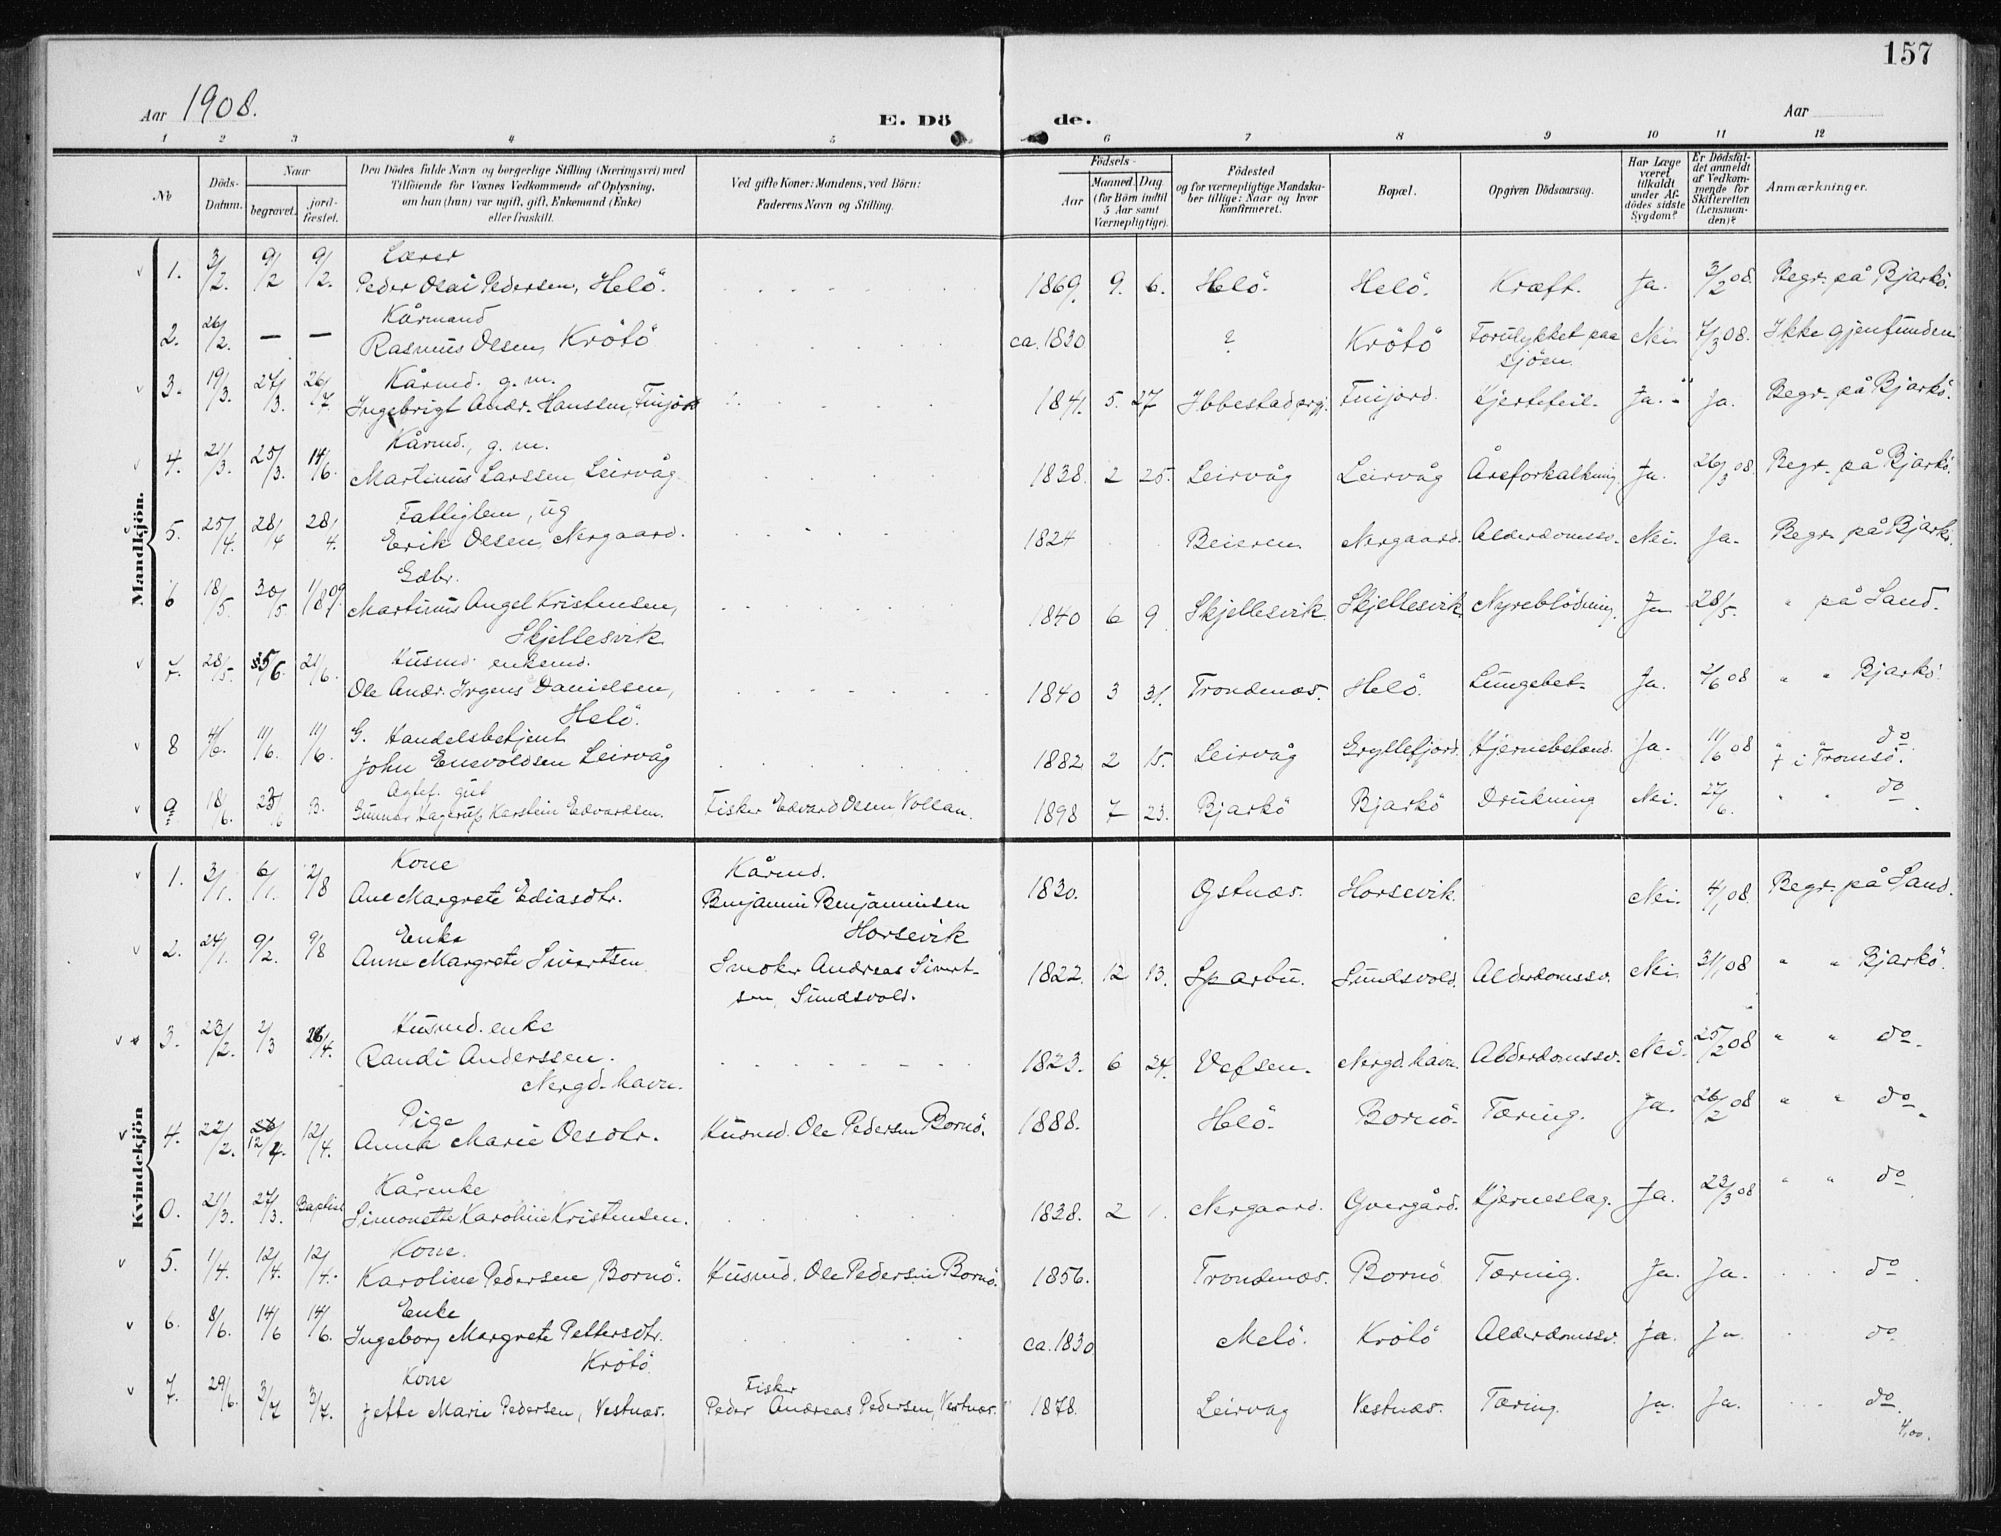 157
Aar 1908.
E. Dö
de.
Aar
1 2 3 4 5 6 7 8 9 10 11 12
No
Döds-Datum.
Naar
begravet.
jord-fæstet.
Den Dödes fulde Navn og borgerlige Stilling (Næringsvei) med
Tilföiende for Voxnes Vedkommende af Oplysning,
om han (hun) var ugift, gift, Enkemand (Enke)
eller fraskilt.
Ved gifte Koner: Mandens, ved Börn:
Faderens Navn og Stilling.
Födsels-
Aar
Maaned
Dag
(for Börn indtil
5 Aar samt
Værnepligtige).
Födested
og for værnepligtige Mandska-
ber tillige: Naar og hvor
konfirmeret.
Bopæl.
Opgiven Dödsaarsag.
Har Læge
været
tilkaldt
under Af-
dödes sidste
Sygdom?
Er Dödsfal-
det anmeldt
af Vedkom-
mende for
Skifteretten
(Lensman-
den)?
Anmærkninger.
Mandkjön.
Lærer
1. 3/2. 9/2 9/2. Peder Olai Pedersen, Helö. 1869. 9. 6. Helö. Helö. Kræft. Ja. 3/2 08. Begr. på Bjarkö.
Kårmand
2. 26/2. — — Rasmus Olsen, Krötö ca. 1830 ? Krötö Forulykket paa sjöen. Nei. 7/3 08. Ikke gjenfunden
Kårmd. g. m.
3. 19/3. 27/3. 26/7. Ingebrigt Andr. Hanssen, Finjord 1841. 5. 27 Ibbestad prgj. Finjord. Hjertefeil. Ja. Ja. Begr. på Bjarkö.
Kårmd., g. m.
4. 21/3. 25/3. 14/6. Martinus Larssen, Leirvåg. 1838. 2 25. Leirvåg Leirvåg Åreforkalkning. Ja. 26/3 08. Begr. på Bjarkö.
Fattiglem, ug
5. 25/4. 28/4 28/4. Erik Olsen, Nergaard. 1824 Beieren Nergaard. Alderdomssv. Nei. Ja. Begr. på Bjarkö.
Gdbr.
6 18/5. 30/5. 1/8 09. Martinus Angel Kristensen,
Skjellesvik 1840 6 9 Skjellesvik Skjellesvik Nyreblödning. Ja 28/5. " på Sand.
Husmd. enkemd.
7. 28/5. 5/6. 21/6. Ole Andr. Irgens Danielsen,
Helö. 1840 3 31. Trondenæs. Helö. Lungebet. Ja. 2/6 08 " " Bjarkö.
G. Handelsbetjent
8 4/6. 11/6. 11/6. John Enevoldsen Leirvåg 1882 2 15. Leirvåg Gryllefjord. Hjernebetænd. Ja. 11/6 08 " " do
† i Tromsö.
Ægtef. gut
9 18/6. 23/6 B. Gunnar Hagerup Karstein Edvardsen. Fisker Edvard Olsen Vollan. 1898 7 23. Bjarkö Bjarkö Drukning Nei. 27/6. " " do.
Kvindekjön
Kone Kårmd.
1. 3/1. 6/1. 2/8 Ane Margrete Ediasdtr. Benjamin Benjaminsen
Horsevik 1830. Gstnæs. Horsevik. Nei. 4/1 08. Begr. på Sand.
Enke
2. 24/1. 9/2. 9/8 Anne Margrete Sivertsen Smeker Andreas Sivert-
sen, Sundsvold. 1822. 12 13. Sparbu. Sundsvold. Alderdomssv. Nei. 31/1 08 " " Bjarkö.
Husmd. enke
3. 23/2. 2/3 26/4. Randi Anderssen.
Nergd. havn. 1823. 6 24. Vefsen. Nergd. havn. Alderdomssv. Nei. 25/2 08 " " do.
Pige
4. 22/2. 12/4. 12/4. Anna Marie Olsdtr. Husmd. Ole Pedersen Bornö. 1888. Helö. Bornö. Tæring. Ja. 26/2 08 " " do.
Kårenke
0. 21/3. 27/3. Baptist Simonette Karoline Kristensen. 1838. 2 1. Nergaard. Övergård. Hjerneslag. Ja. 23/3 08 " " do
Kone.
5. 1/4. 12/4. 12/4. Karoline Pedersen, Bornö. Husmd. Ole Pedersen Bornö. 1856. Trondenæs. Bornö Tæring. Ja. Ja. do.
Enke
6. 8/6. 14/6 14/6. Ingeborg Margrete Pettersdtr.
Krötö. ca. 1830 Melö. Krötö Alderdomssv. Ja. Ja. do
Kone Fisker
7. 29/6. 3/7 3/7. Jette Marie Pedersen, Vestnæs. Peder Andreas Pedersen, Vestnæs. 1878. Leirvag Vestnæs. Tæring. Ja. Ja. do.